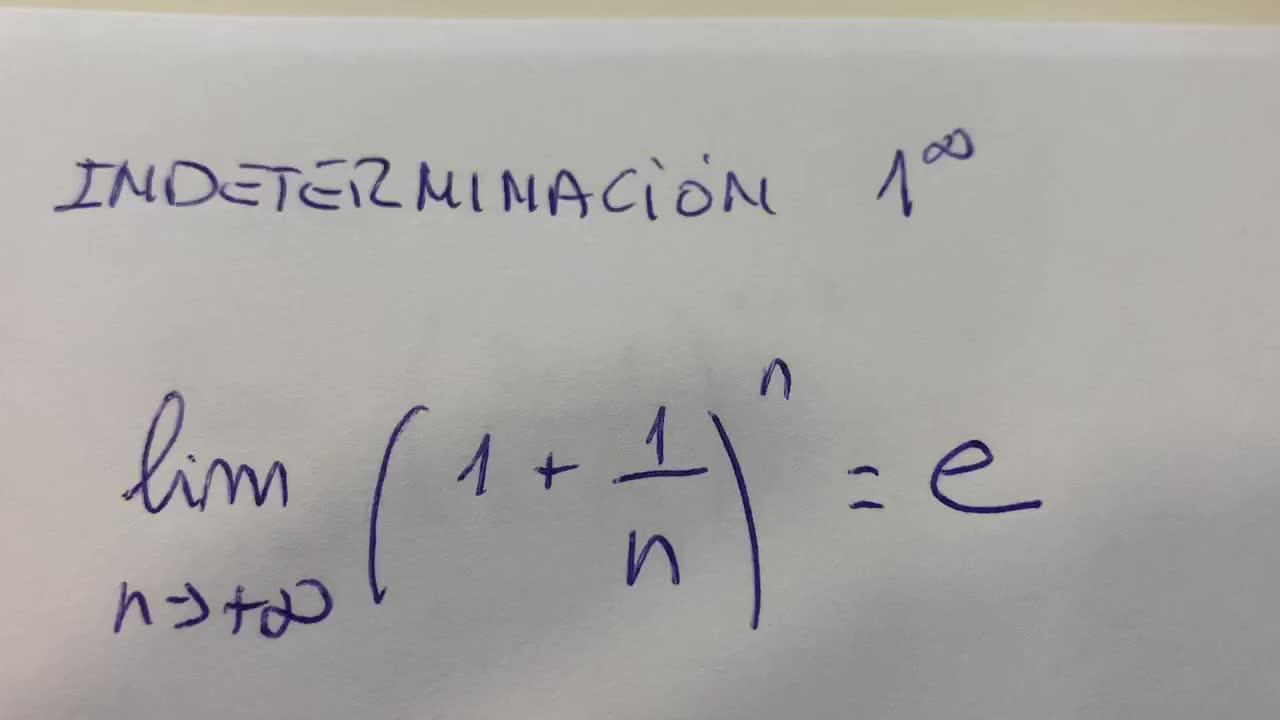 INDETERMINACIÓN 1^∞
lim (1 + 1/n)^n = e
n→+∞